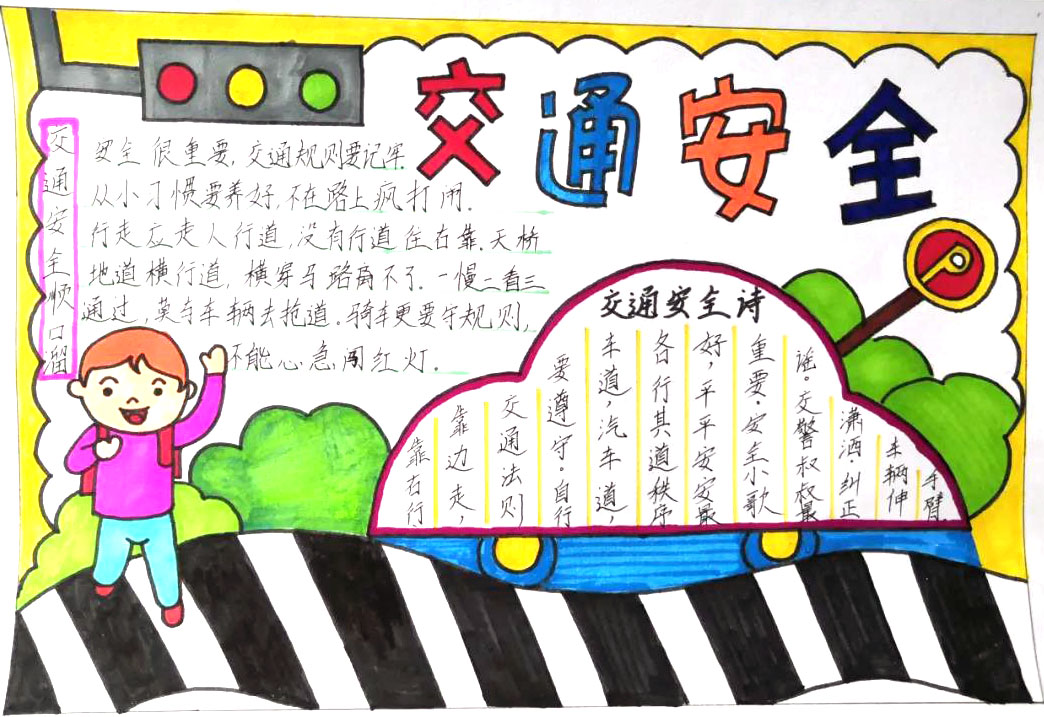 交通安全
交通安全顺口溜
安全很重要,交通规则要记牢
从小习惯要养好,不在路上疯打闹.
行走应走人行道,没有行道往右靠.天桥
地道横行道,横穿马路离不了.一慢二看三
通过,莫与车辆去抢道。骑车更要守规则,
不能心急闯红灯.
交通安全诗
靠右行
靠边走,
交通法则
要遵守。自行
车道,汽车道,
各行其道秩序
好,平平安安最
重要.安全小歌
谣。交警叔叔最
潇洒.纠正
车辆伸
手臂.